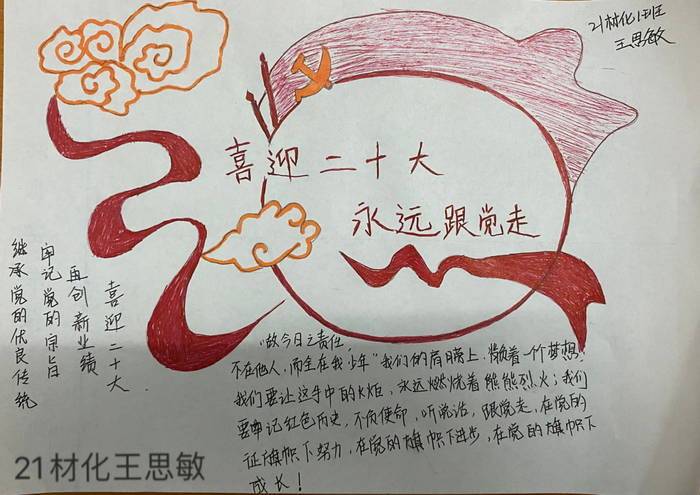 21材化1班
王思敏
喜迎二十大
永远跟党走
喜迎二十大
再创新业绩
牢记党的宗旨
继承党的优良传统
"故今日之责任,
不在他人,而全在我少年"我们的肩膀上,懒着一个梦想:
我们要让这手中的火炬,永远燃烧着熊熊烈火;我们
要牢记红色历史,不负使命,听党话,跟党走,在党的
征旗帜下努力,在党的旗帜下进步,在党的旗帜下
成长!
21材化王思敏